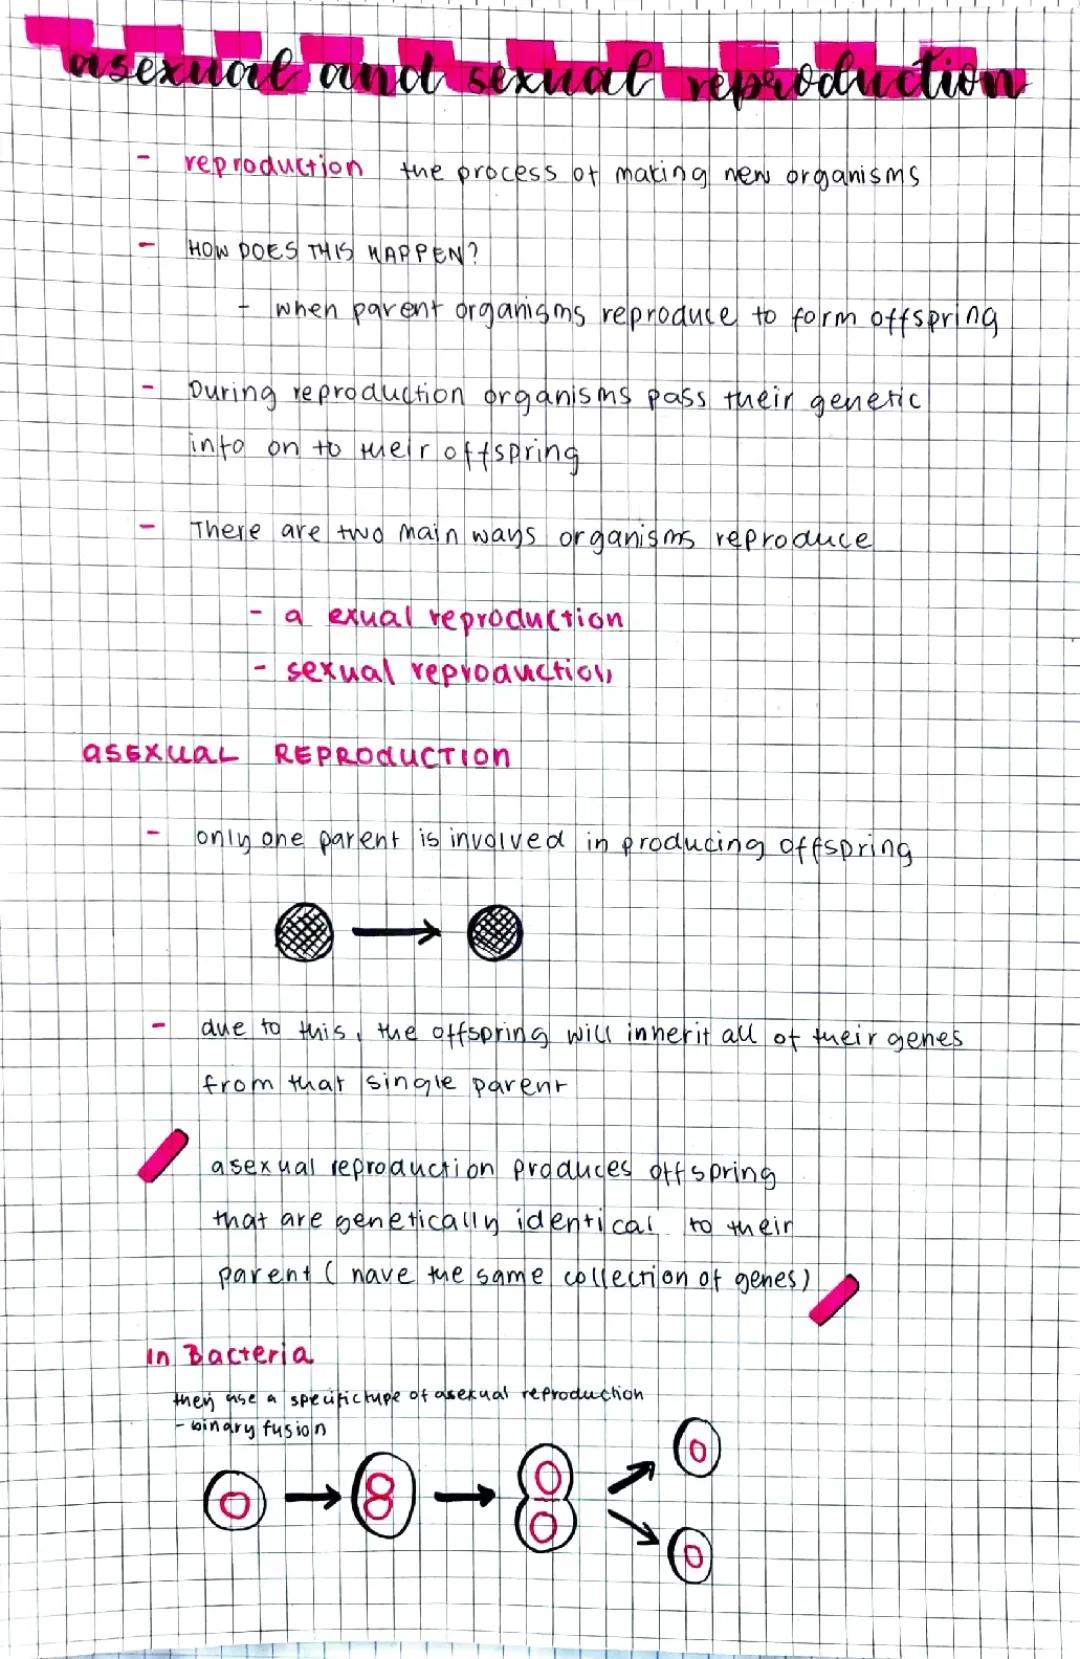 asexual and sexual reproduction
- reproduction the process of making new organisms
- HOW DOES THIS HAPPEN?
- when parent organisms reproduce to form offspring
- During reproduction organisms pass their genetic
info on to their offspring
- There are two main ways organisms reproduce
- a exual reproduction
- sexual reproduction
asexual REPRODUCTION
- only one parent is involved in producing offspring
- due to this, the offspring will inherit all of their genes
from that single parent
asexual reproduction produces offspring
that are genetically identical to their
parent (have the same collection of genes)
in Bacteria
they use a specific type of asexual reproduction
- binary fusion